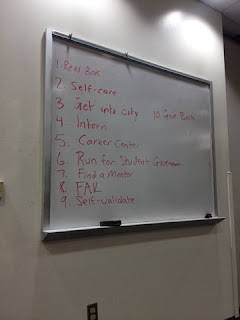 1. Read Books
2. Self-care
3 Get into city
4 Intern
5. Career Center
6. Run for Student
7. Find a Mentor
8. FAIL
9. Self-validate
10. Give Back